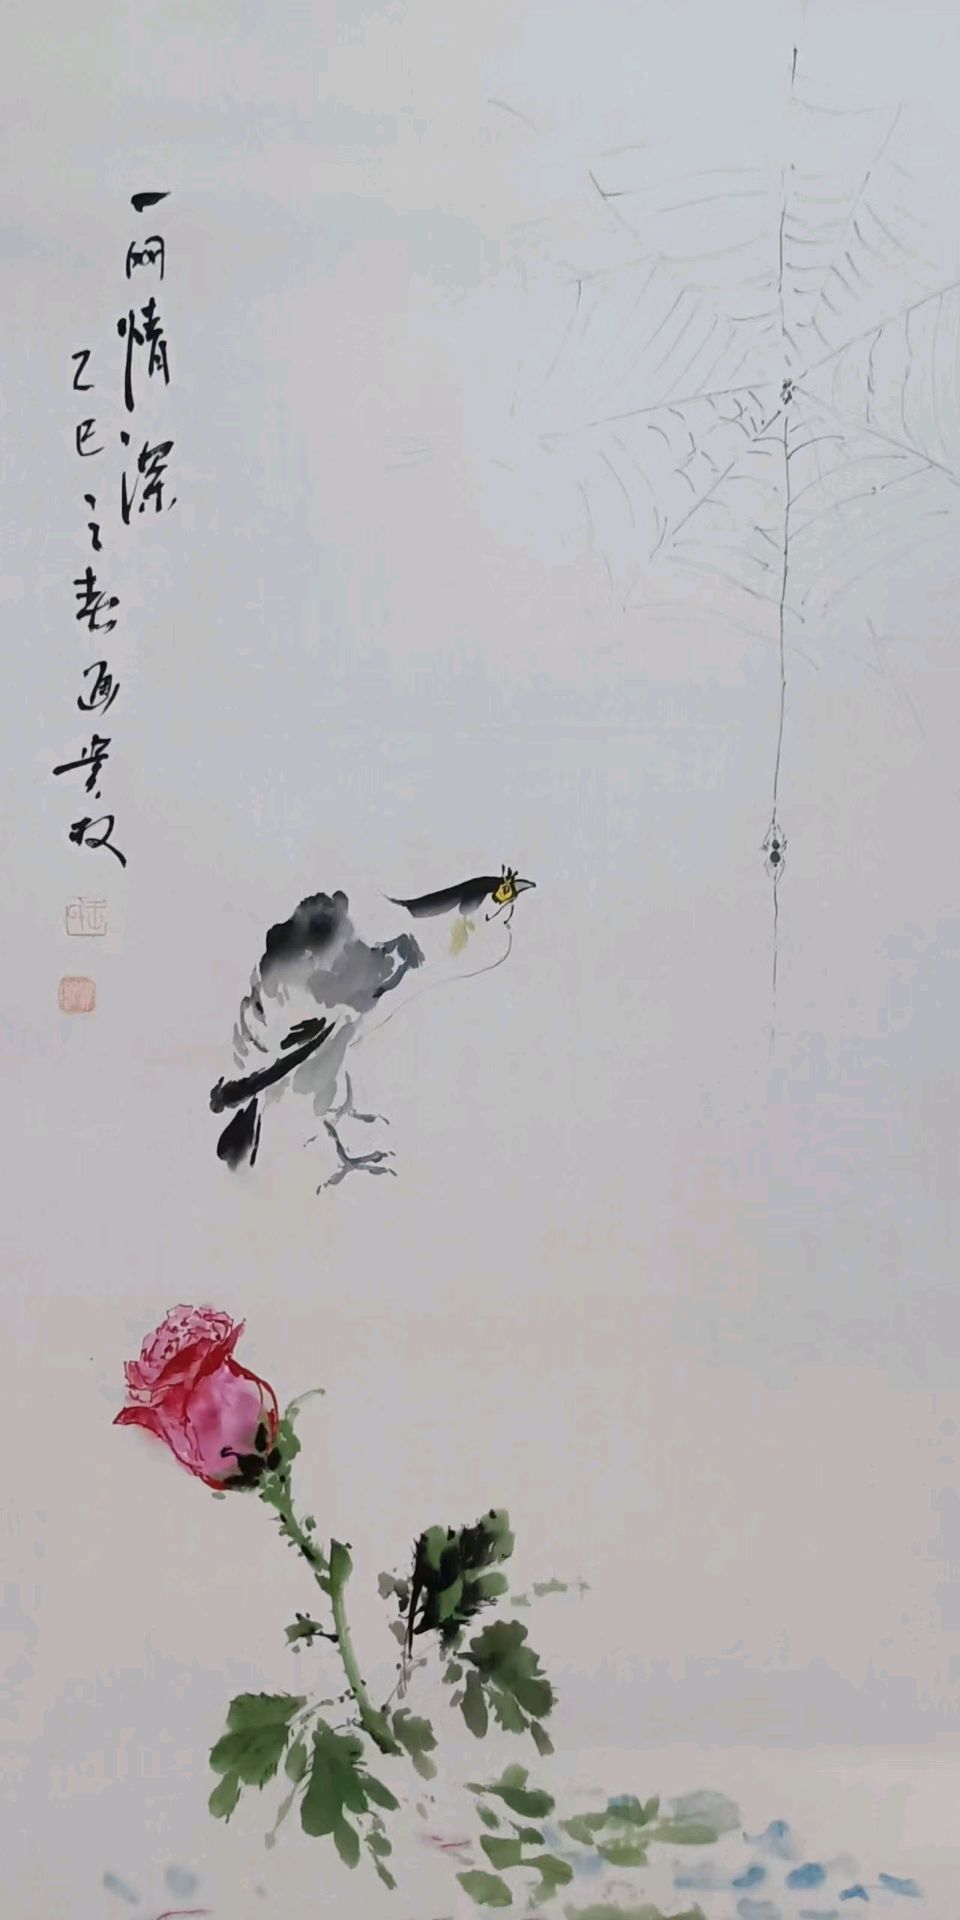 一网情深
乙巳之春画贵权